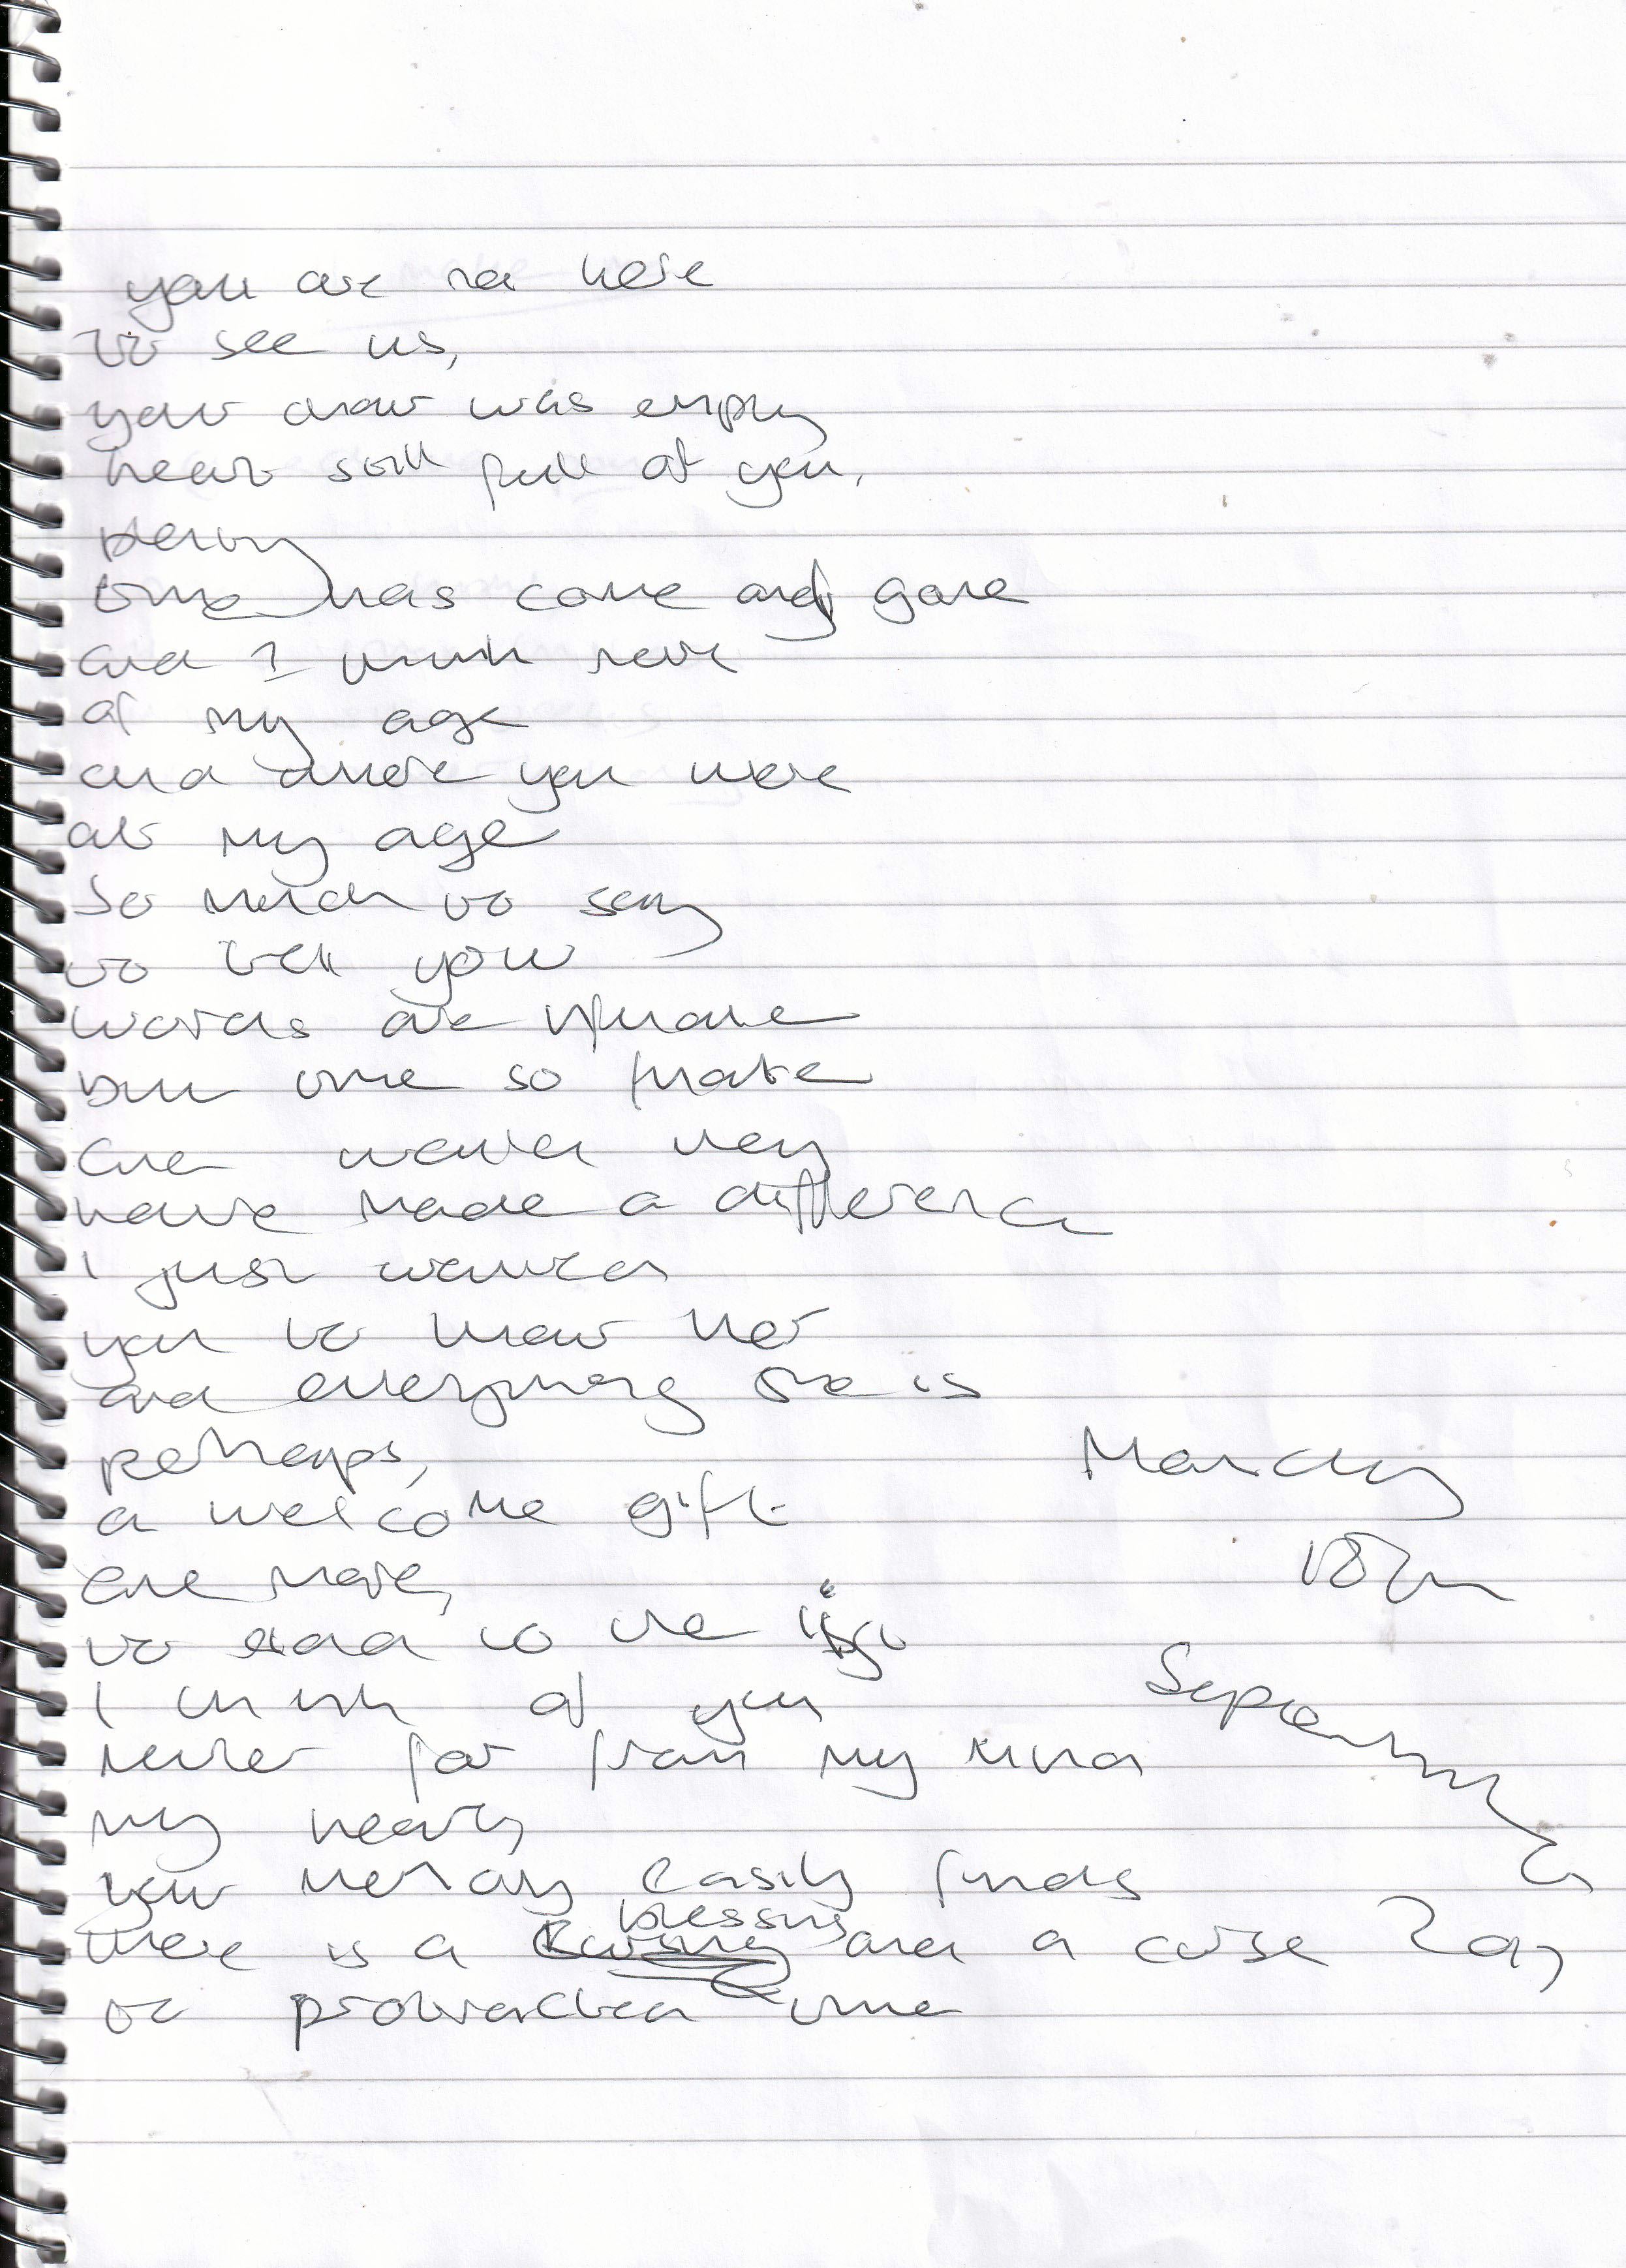 you are not here
to see us,
your chair was empty
heart still full of you,
plenty
time has come and gone
and I think now
of my age
and where you were
at my age
So much to say
to tell you
words are
but time so finite
and wonder they
have made a difference
I just wanted
you to know her
and everything she is
perhaps,
a welcome gift
one more,
to add to the list
I think of you
never far from my mind
my heart,
your melody easily finds
there is a blessing and a curse
to protracted time
Monday
18th
September
2023